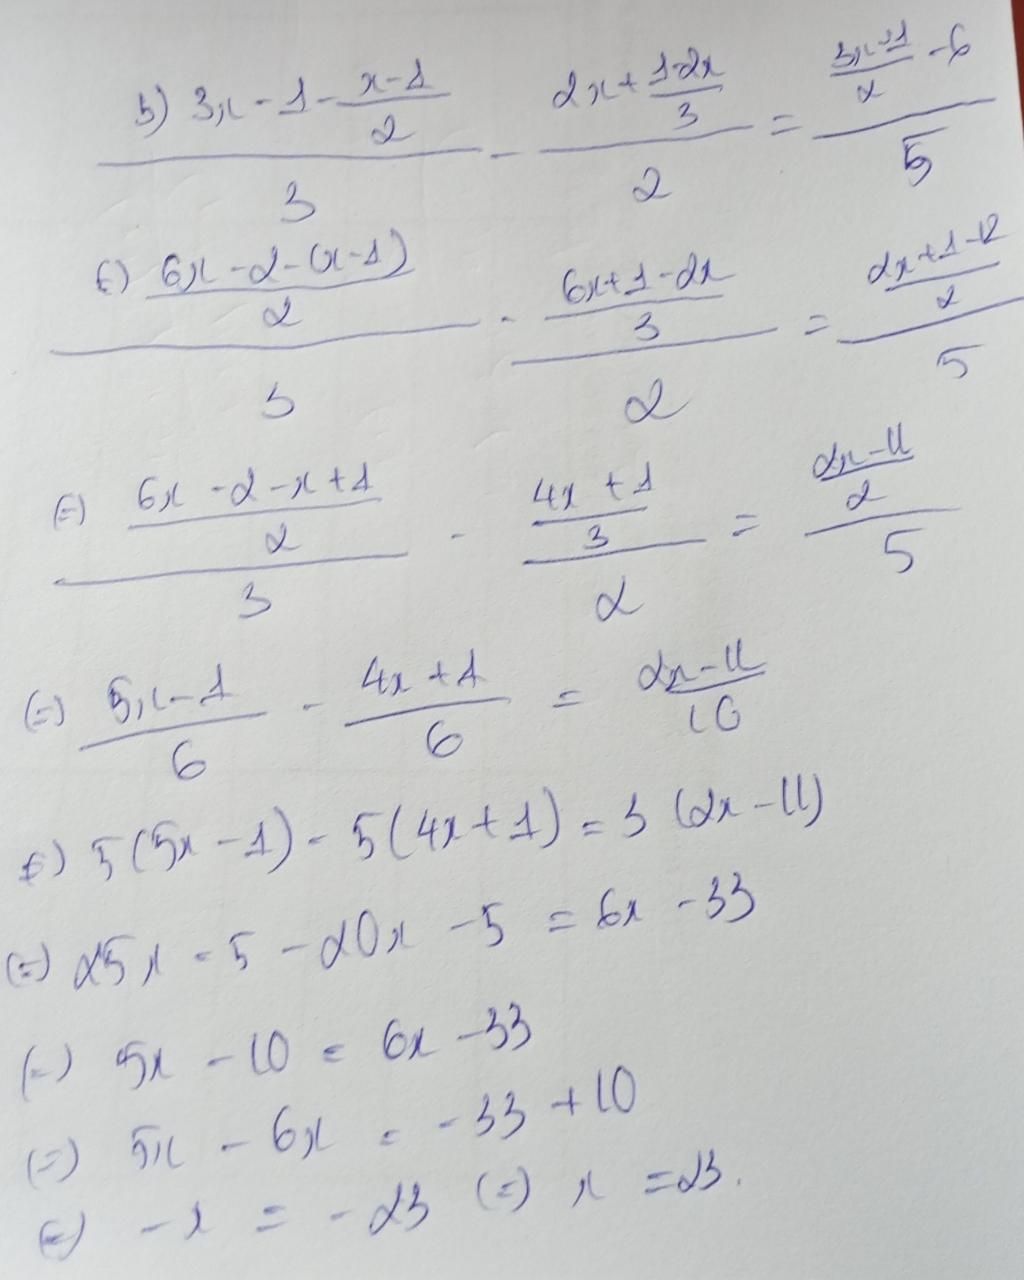 b) (3x - 1 - (x-1)/2)/3 - (2x + (1-2x)/3)/2 = ((3x-1)/2 - 6)/5
(=) ((6x - 2 - (x-1))/2)/3 - ((6x + 1 - 2x)/3)/2 = ((2x + 1 - 12)/2)/5
(=) ((6x - 2 - x + 1)/2)/3 - ((4x + 1)/3)/2 = ((2x - 11)/2)/5
(=) (5x - 1)/6 - (4x + 1)/6 = (2x - 11)/10
(=) 5(5x - 1) - 5(4x + 1) = 3(2x - 11)
(=) 25x - 5 - 20x - 5 = 6x - 33
(=) 5x - 10 = 6x - 33
(=) 5x - 6x = -33 + 10
(=) -x = -23 (=) x = 23.